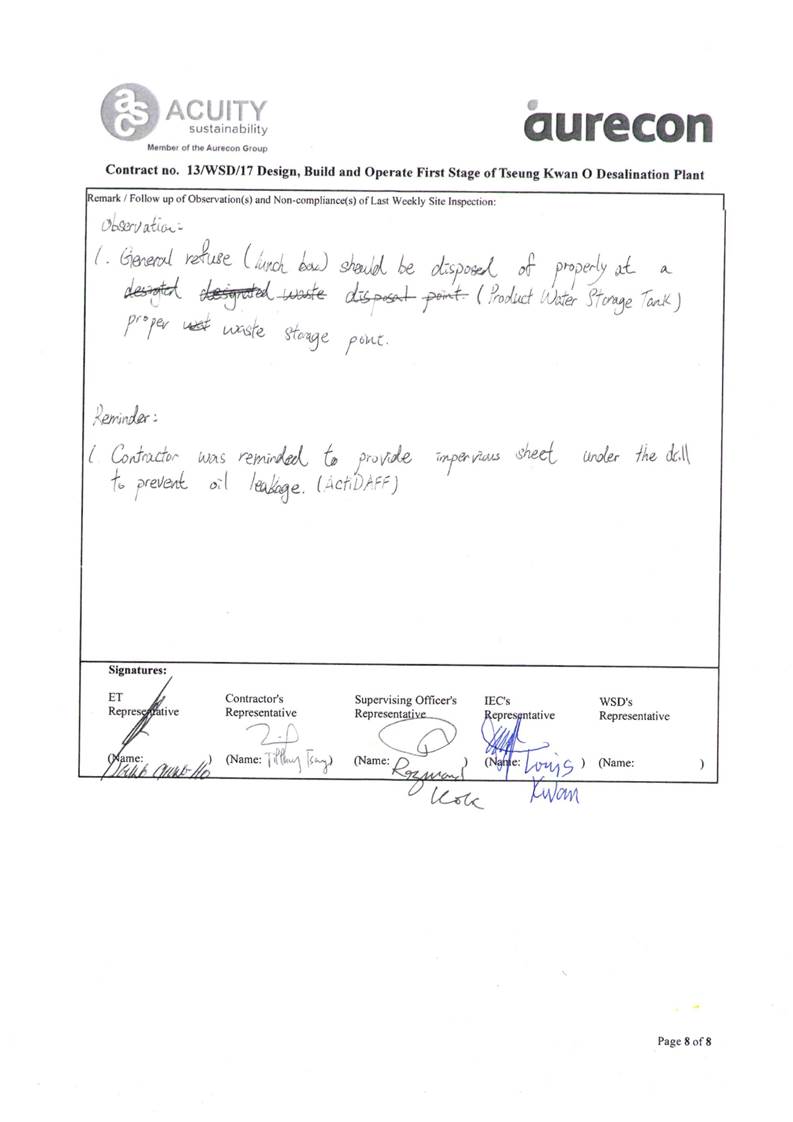 asc ACUITY
sustainability
Member of the Aurecon Group
aurecon
Contract no. 13/WSD/17 Design, Build and Operate First Stage of Tseung Kwan O Desalination Plant
Remark / Follow up of Observation(s) and Non-compliance(s) of Last Weekly Site Inspection:
Observation:-
1. General refuse (lunch box) should be disposed of properly at a
designated waste disposal point. (Product Water Storage Tank)
proper waste storage point.
Reminder:
1. Contractor was reminded to provide impervious sheet under the drill
to prevent oil leakage. (ActiDAFF)
Signatures:
ET Representative
Contractor's Representative
Supervising Officer's Representative
IEC's Representative
WSD's Representative
(Name: )
(Name: Tiffany Tsang)
(Name: Kok )
(Name: Louis Kwan )
(Name: )
Page 8 of 8